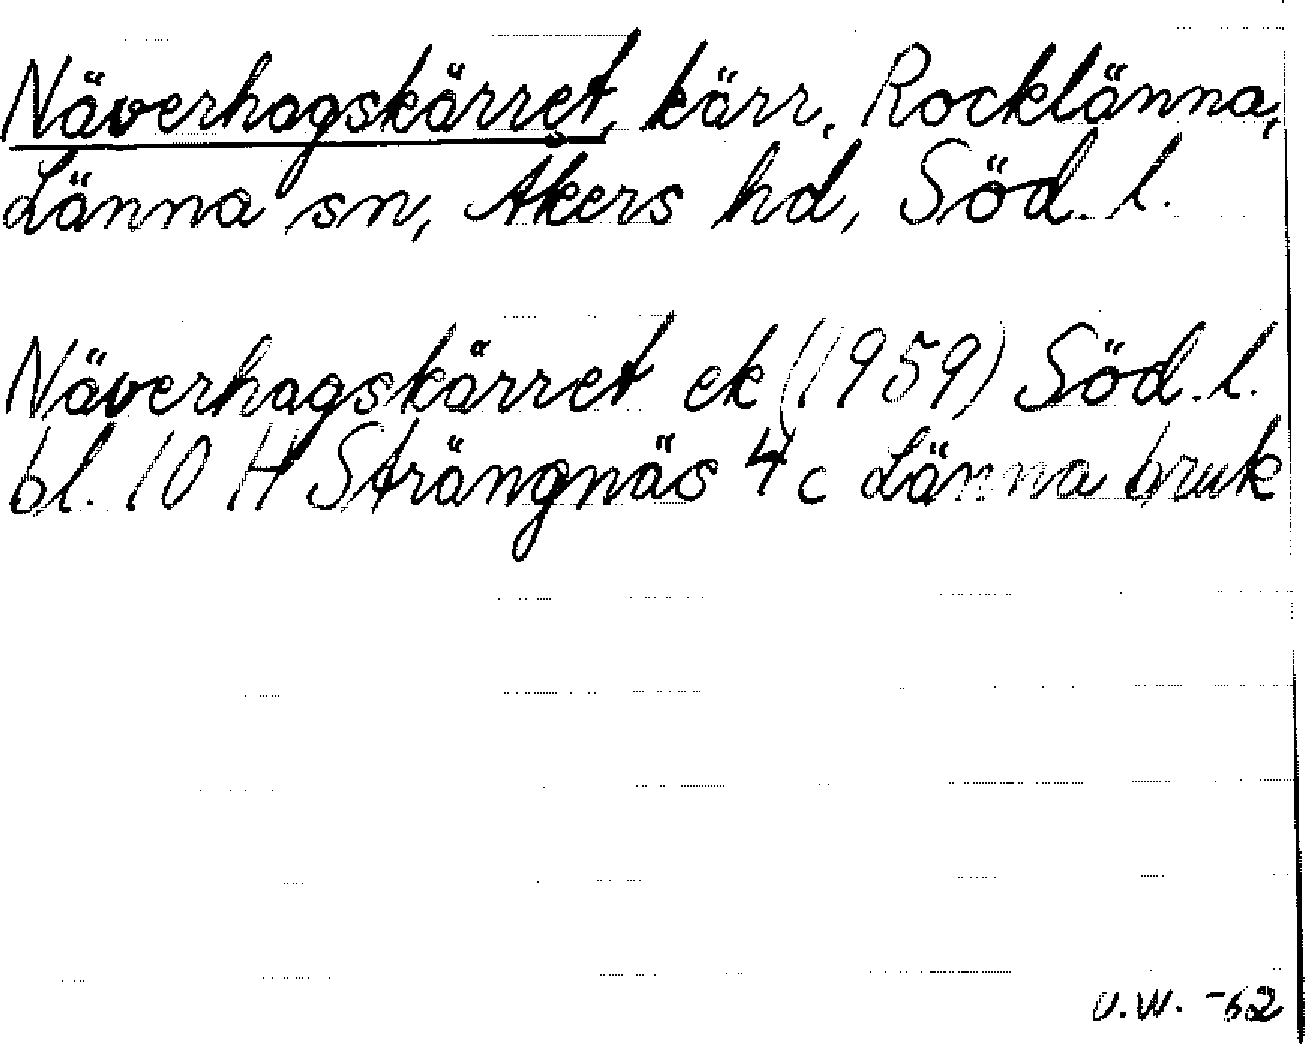 Näverhagskärret, kärr, Rocklänna,
Länna sn, Åkers hd, Söd. l.
Näverhagskärret ek (1959) Söd. l.
bl. 10 H Strängnäs 4 c Länna bruk
U.W. -62